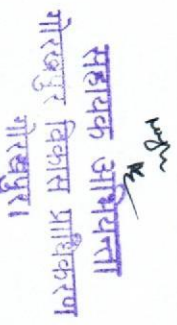 सहायक अभियन्ता
गोरखपुर विकास प्राधिकरण
गोरखपुर।